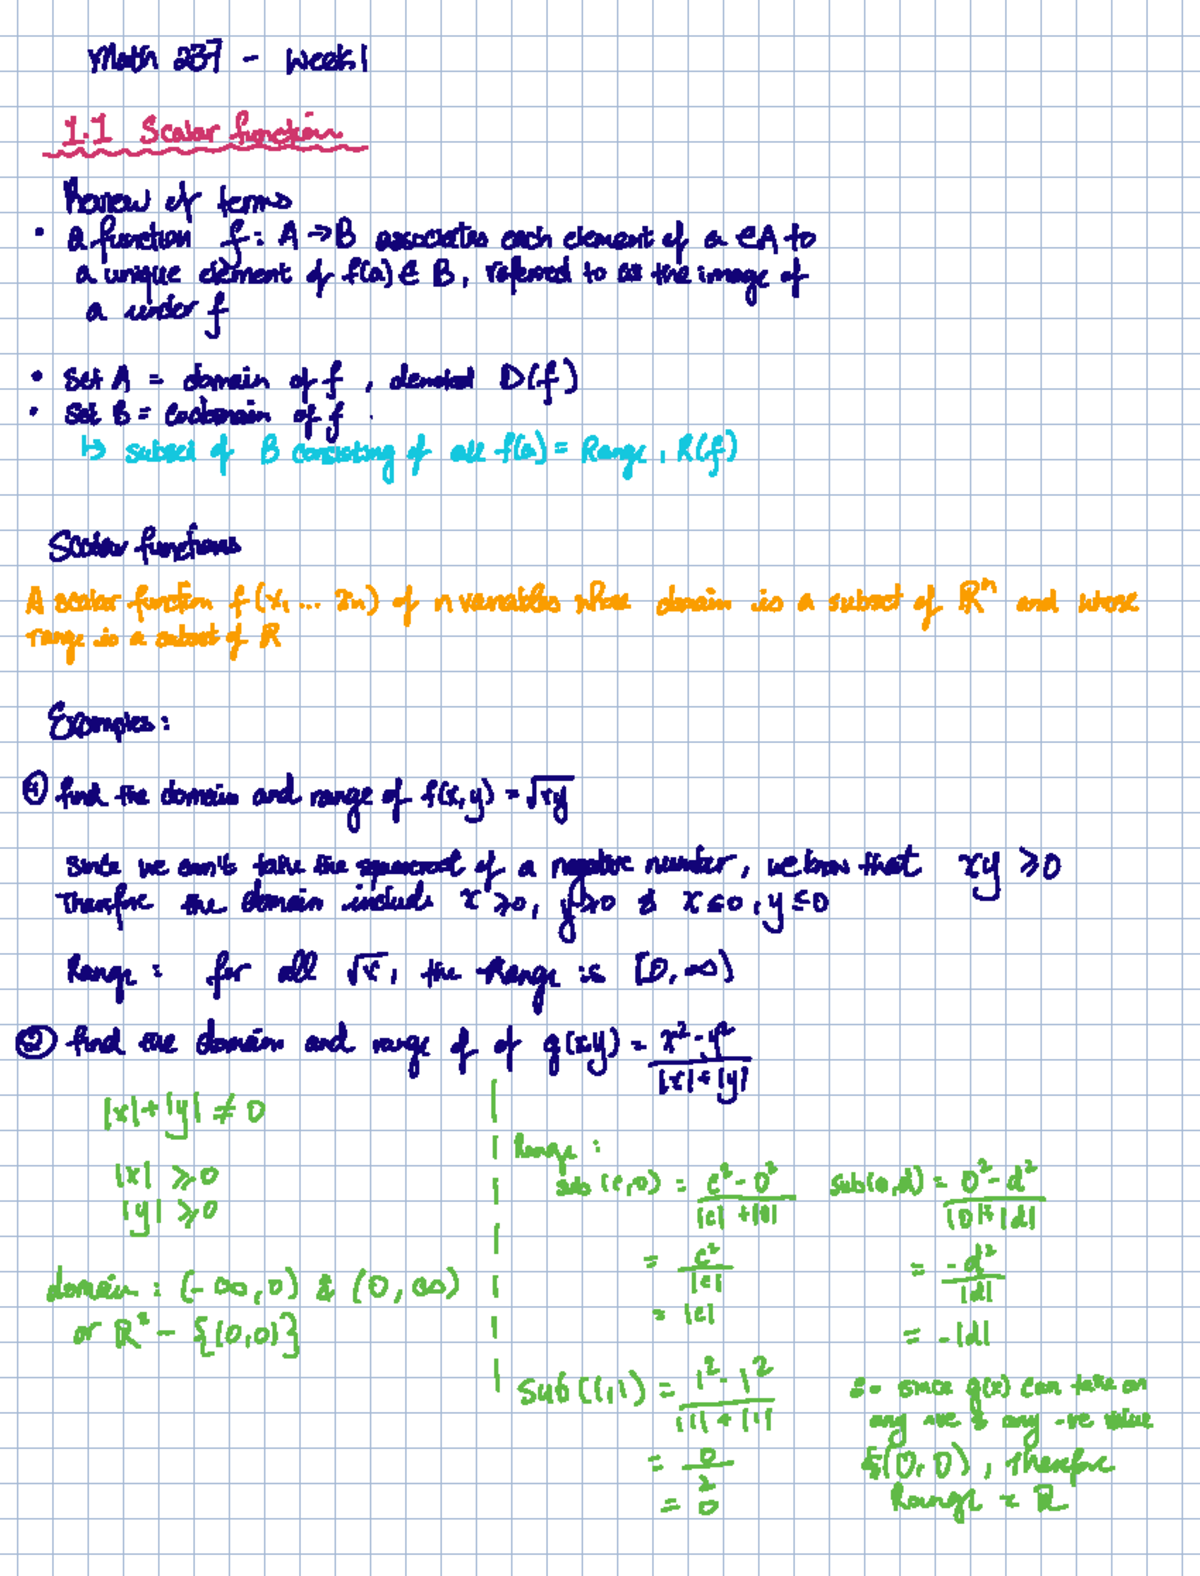 Math 237 - Week 1
1.1 Scalar function
Review of terms
• a function f: A → B associates each element of a ∈ A to
a unique element of f(a) ∈ B, referred to as the image of
a under f
• Set A = domain of f , denoted D(f)
• Set B = Codomain of f .
↳ subset of B consisting of all f(a) = Range, R(f)
Scalar functions
A scalar function f(x₁ ... xₙ) of n variables whose domain is a subset of ℝⁿ and whose
range is a subset of ℝ
Examples:
① find the domain and range of f(x,y) = √xy
Since we can't take the squareroot of a negative number, we know that xy ≥ 0
Therefore the domain include x ≥ 0, y ≥ 0 & x ≤ 0, y ≤ 0
Range : for all √x, the Range is [0, ∞)
② find the domain and range of of g(x,y) = x² - y² / |x| + |y|
|x| + |y| ≠ 0
|x| ≥ 0
|y| ≥ 0
domain : (-∞, 0) & (0, ∞)
or ℝ² - {(0,0)}
Range :
sub (c,0) = c² - 0² / |c| + |0|
= c² / |c|
= |c|
sub(0,d) = 0² - d² / |0| + |d|
= -d² / |d|
= -|d|
Sub (1,1) = 1² - 1² / |1| + |1|
= 0 / 2
= 0
∴ since g(x) can take on
any +ve & any -ve value
&(0,0), Therefore
Range = ℝ